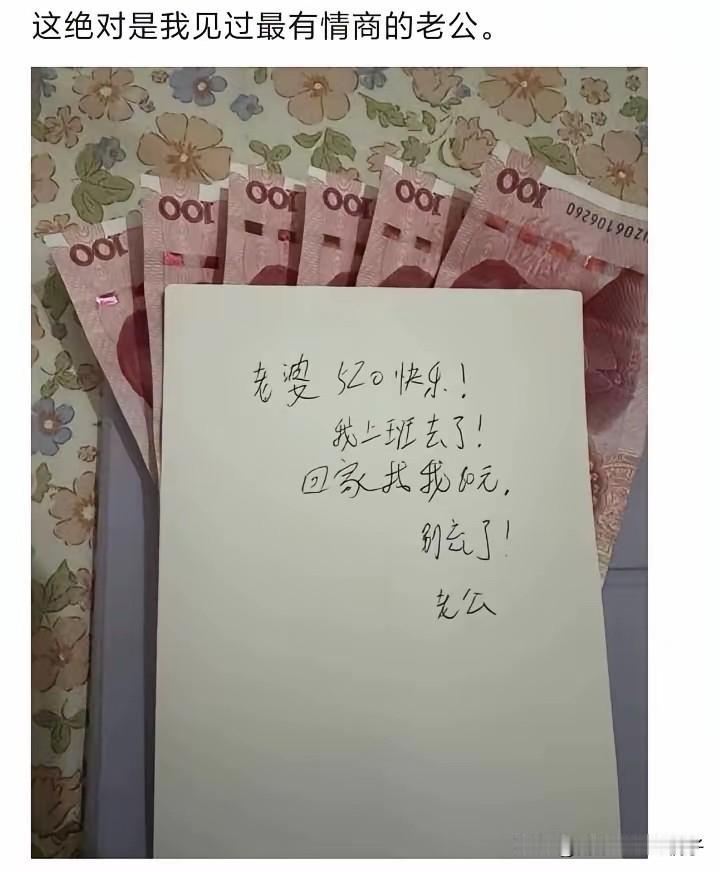 这绝对是我见过最有情商的老公。
100
100
100
100
100
100
老婆 520快乐！
我上班去了！
回家找我80元，
别忘了！
老公